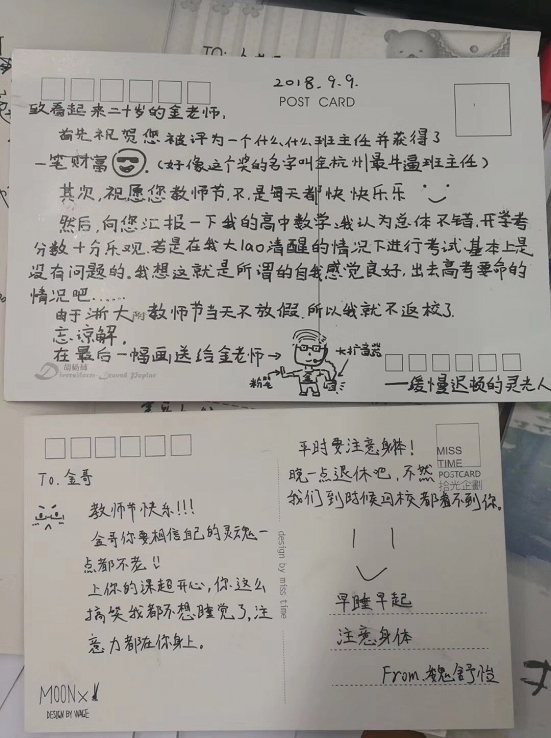 TO:
2018.9.9.
POST CARD
致看起来二十岁的金老师,
首先祝贺您被评为一个什么什么班主任并获得了
一笔财富 。(好像这个奖的名字叫全杭州最牛逼班主任)
其次,祝愿您教师节,不,是每天都快快乐乐
然后,向您汇报一下我的高中数学,我认为总体不错,开学考
分数十分乐观,若是在我大lao清醒的情况下进行考试,基本上是
没有问题的。我想这就是所谓的自我感觉良好,出去高考要命的
情况吧……
由于浙大附教师节当天不放假,所以我就不返校了.
忘谅解.
在最后一幅画送给金老师→
粉笔
大扩音器
——缓慢迟顿的灵光人
To. 金哥
教师节快乐!!!
金哥你要相信自己的灵魂一
点都不老!!
上你的课超开心,你这么
搞笑我都不想睡觉了,注
意力都在你身上。
MOON×
DESIGN BY WAGE
design by miss time
平时要注意身体!
晚一点退休吧,不然
我们到时候回校都看不到你。
MISS
TIME
POSTCARD
拾光企劃
早睡早起
注意身体
From.魏舒怡